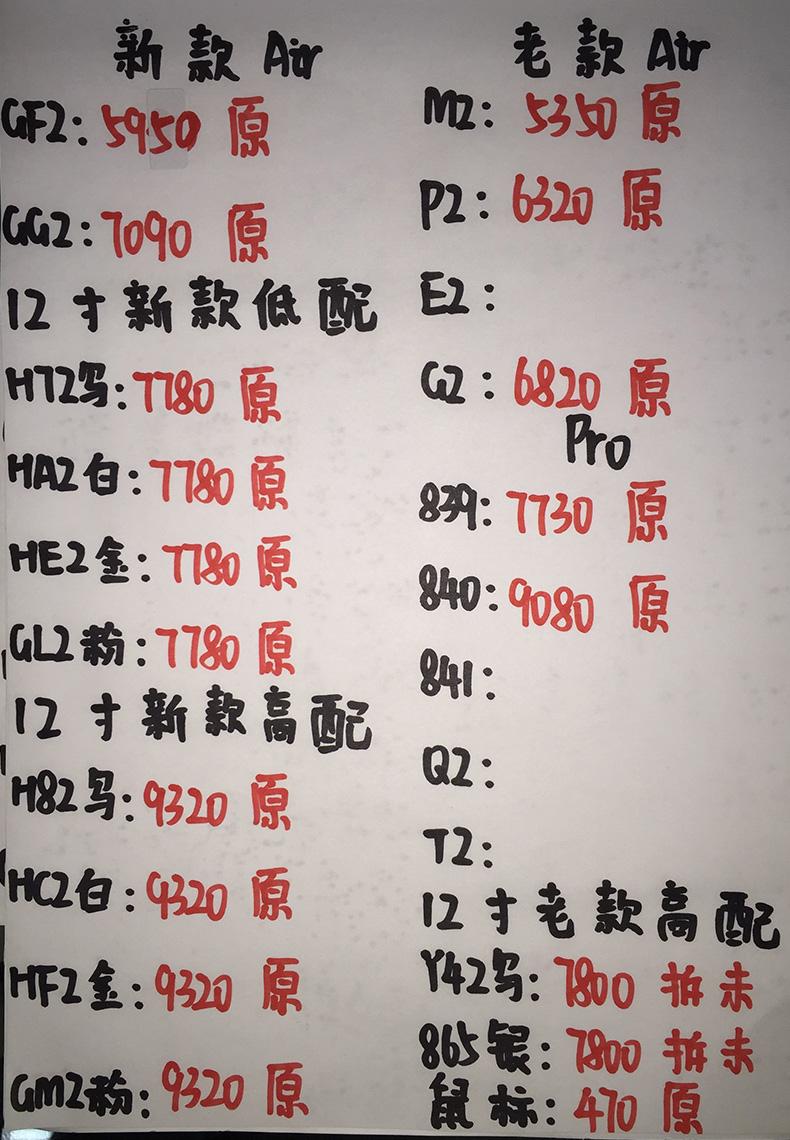 新款Air
GF2:5950原
GG2:7090原
12寸新款低配
H72鸟:7780原
HA2白:7780原
HE2金:7780原
GL2粉:7780原
12寸新款高配
H82鸟:9320原
HC2白:9320原
HF2金:9320原
GM2粉:9320原
老款Air
M2:5350原
P2:6320原
E2:
G2:6820原
Pro
839:7730原
840:9080原
841:
Q2:
T2:
12寸老款高配
Y42鸟:7800拆未
865银:7800拆未
鼠标:470原